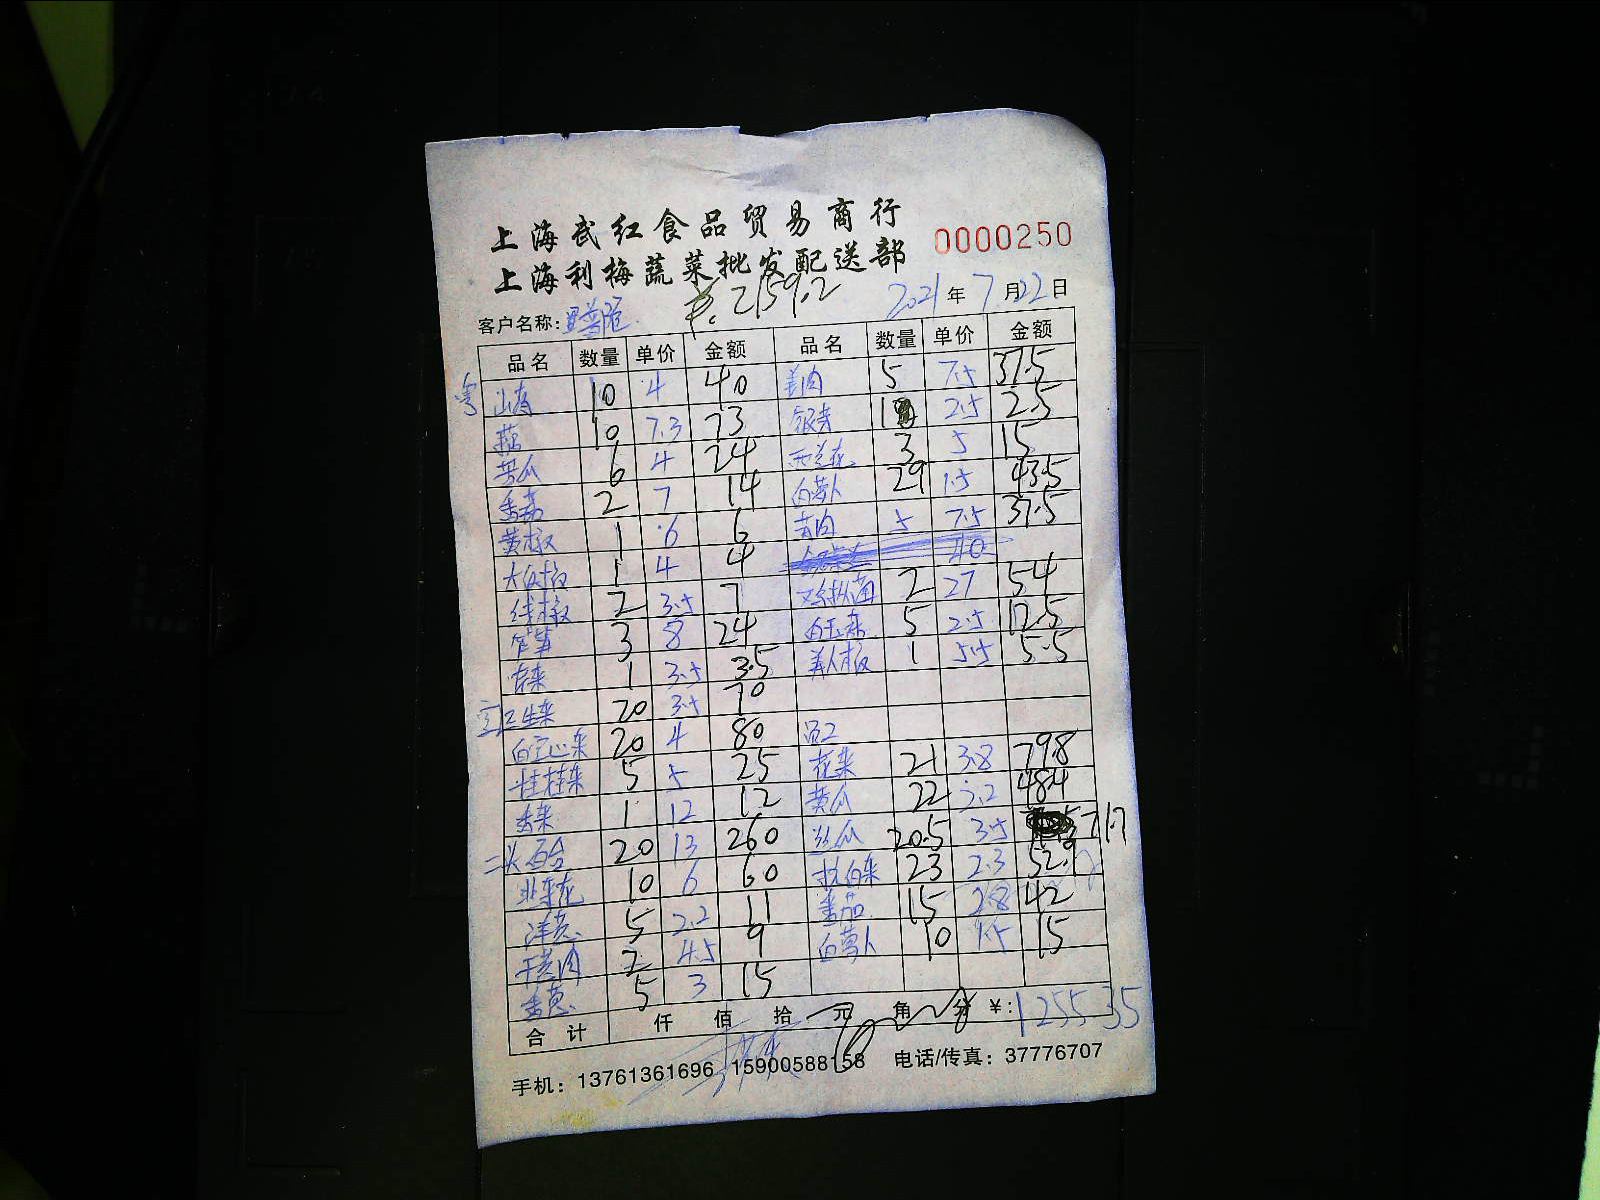 上海武红食品贸易商行
上海利梅蔬菜批发配送部
0000250
¥.2159.2
2021年7月22日
客户名称:
品名 数量 单价 金额 品名 数量 单价 金额
10 4 40 羊肉 5 7.5 37.5
10 7.3 73 1 2.5 2.5
苦瓜 6 4 24 西兰花 3 5 15
香菇 2 7 14 白萝卜 29 1.5 43.5
黄椒 1 6 6 5 7.5 37.5
1 4 4 40
线椒 2 3.5 7 鸡枞菌 2 27 54
3 8 24 白玉菇 5 2.5 12.5
1 3.5 3.5 美人椒 1 5.5 5.5
生菜 20 3.5 70
白空心菜 20 4 80 员工
5 5 25 花菜 21 3.8 79.8
香菜 1 12 12 黄瓜 22 2.2 48.4
百合 20 13 260 丝瓜 20.5 3.5 71.7
韭菜花 10 6 60 杭白菜 23 2.3 52.9
洋葱 5 2.2 11 番茄 15 2.8 42
2 4.5 9 白萝卜 10 1.5 15
香葱 5 3 15
合计 仟 佰 拾 元 角 分 ¥:1255.35
手机:13761361696 15900588158 电话/传真:37776707